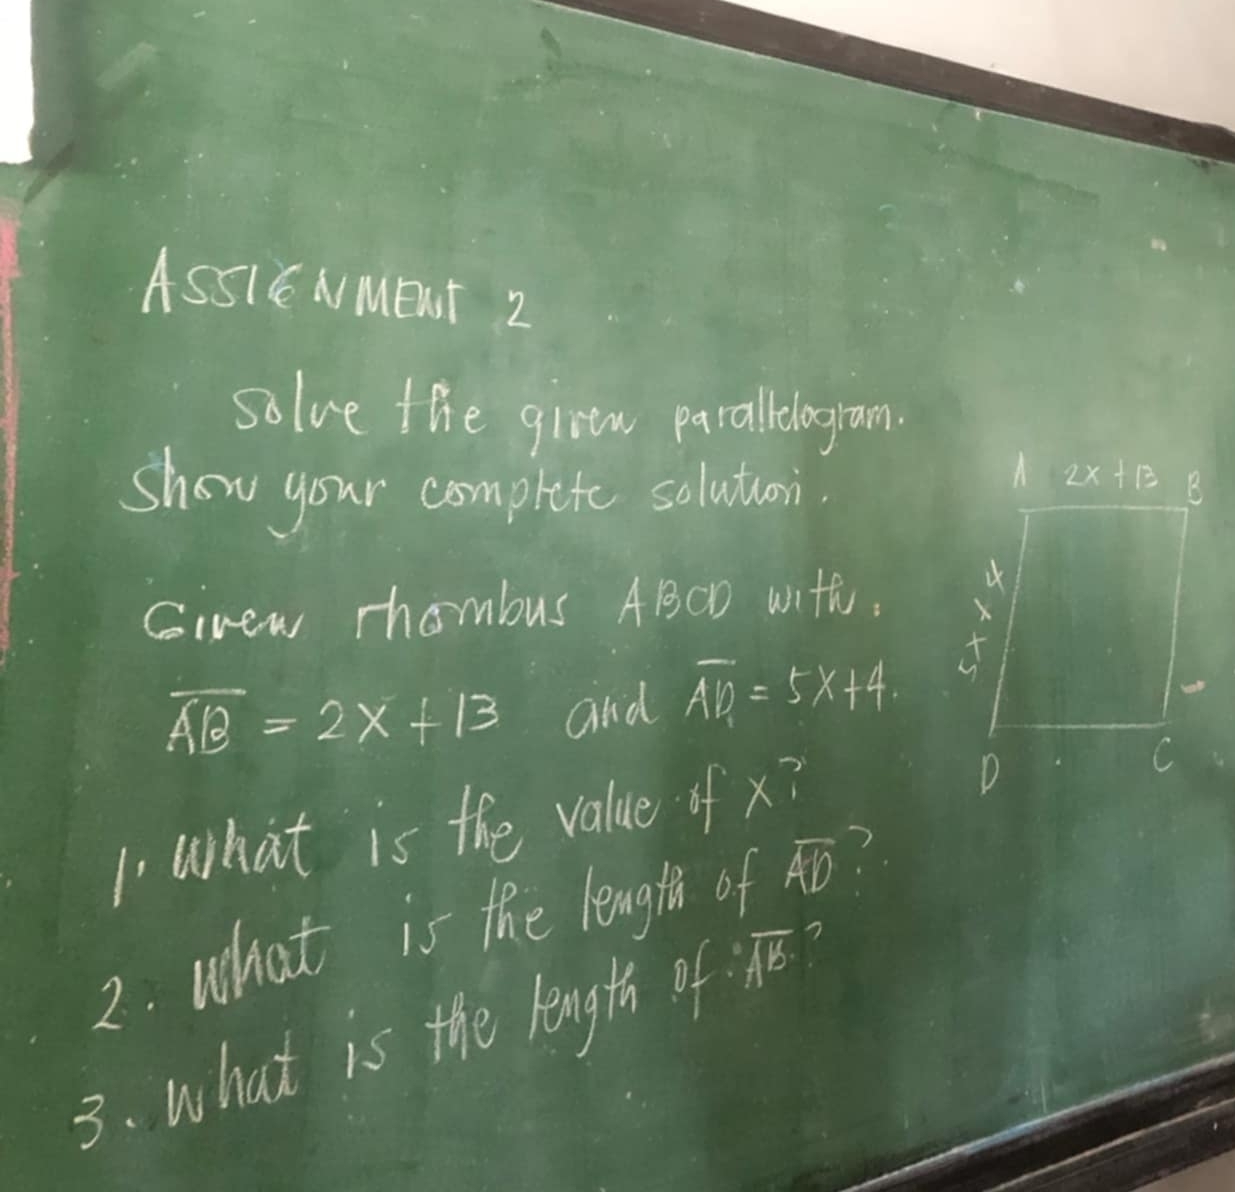 ASSIGNMENT 2
Solve the given parallelogram.
Show your complete solution.
Given rhombus ABCD with:
AB = 2X + 13 and AD = 5X+4.
1. What is the value of x?
2. What is the length of AD?
3. What is the length of AB?
A 2x + 13 B
5x + 4
D C